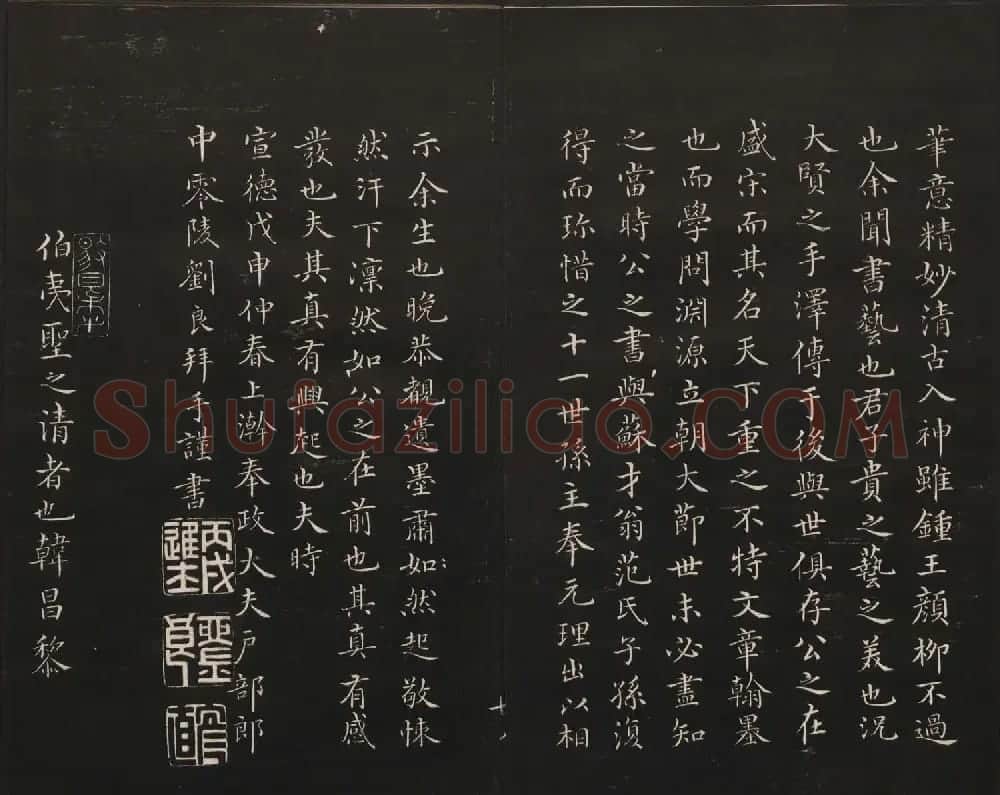 筆意精妙清古入神雖鍾王顏柳不過
也余聞書藝也君子貴之藝之美也況
大賢之手澤傳于後與世俱存公之在
盛宋而其名天下重之不特文章翰墨
也而學問淵源立朝大節世未必盡知
之當時公之書與蘇才翁范氏子孫復
得而珎惜之十一世孫主奉元理出以相
十八
示余生也晚恭觀遺墨肅如然起敬悚
然汗下凜然如公之在前也其真有感
發也夫其真有興起也夫時
宣德戊申仲春上澣奉政大夫戶部郎
中零陵劉良拜手謹書
丙戌進士
劉良
伯夷聖之清者也韓昌黎
Shufaziliao.COM